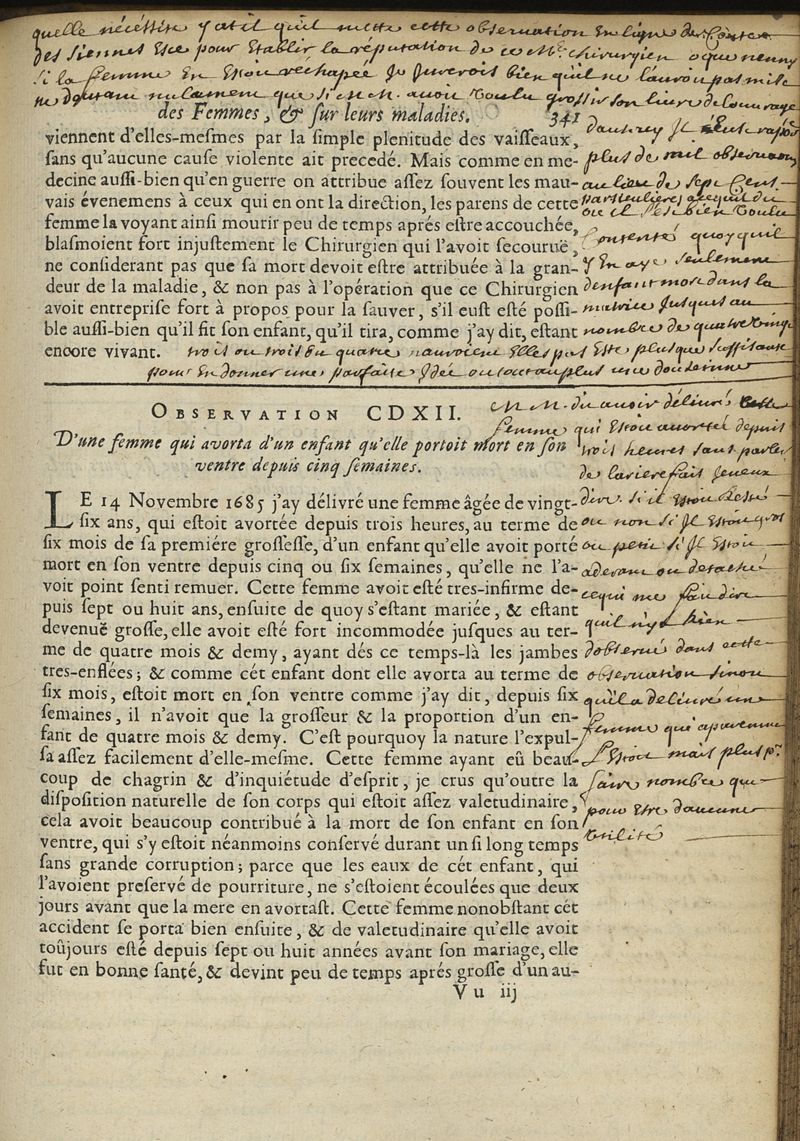 quelle nécéssité y at il qu'il mette cette observation en ligne de Conte
des siennes esce pour établir la réputation de ce Me. chirurgien o que nenny
si la femme en étoit rechapée je jurerois bien qu'il ne l'auroit pas mise
ne doutant nulement que si M M. avoit voulu grossir son livre de
des Femmes, & ſur leurs maladies. 341
viennent d'elles-meſmes par la ſimple plenitude des vaiſſeaux,
ſans qu'aucune cauſe violente ait precedé. Mais comme en me-
decine auſſi-bien qu'en guerre on attribue aſſez ſouvent les mau-
vais évenemens à ceux qui en ont la direction, les parens de cette
femme la voyant ainſi mourir peu de temps aprés eſtre accouchée,
blaſmoient fort injuſtement le Chirurgien qui l'avoit ſecouruë,
ne conſiderant pas que ſa mort devoit eſtre attribuée à la gran-
deur de la maladie, & non pas à l'opération que ce Chirurgien
avoit entrepriſe fort à propos pour la ſauver, s'il euſt eſté poſſi-
ble auſſi-bien qu'il fit ſon enfant, qu'il tira, comme j'ay dit, eſtant
encore vivant.
plus de mil
au lieu de sept Cent
quoy qu'il
y en aye seulement
d'enfant mort dans la
matrice jusques au
nombre de quatre vingt
trois ou quatre n'auroient elles pas esté plus que suffisante
pour en donner une parfaite idée ou tout au plus une douzaine
OBSERVATION CDXII.
D'une femme qui avorta d'un enfant qu'elle portoit mort en ſon
ventre depuis cinq ſemaines.
LE 14 Novembre 1685 j'ay délivré une femme âgée de vingt-
ſix ans, qui eſtoit avortée depuis trois heures, au terme de
ſix mois de ſa premiére groſſeſſe, d'un enfant qu'elle avoit porté
mort en ſon ventre depuis cinq ou ſix ſemaines, qu'elle ne l'a-
voit point ſenti remuer. Cette femme avoit eſté tres-infirme de-
puis ſept ou huit ans, enſuite de quoy s'eſtant mariée, & eſtant
devenuë groſſe, elle avoit eſté fort incommodée juſques au ter-
me de quatre mois & demy, ayant dés ce temps-là les jambes
tres-enflées; & comme cét enfant dont elle avorta au terme de
ſix mois, eſtoit mort en ſon ventre comme j'ay dit, depuis ſix
ſemaines, il n'avoit que la groſſeur & la proportion d'un en-
fant de quatre mois & demy. C'eſt pourquoy la nature l'expul-
ſa aſſez facilement d'elle-meſme. Cette femme ayant eû beau-
coup de chagrin & d'inquiétude d'eſprit, je crus qu'outre la
diſpoſition naturelle de ſon corps qui eſtoit aſſez valetudinaire,
cela avoit beaucoup contribué à la mort de ſon enfant en ſon
ventre, qui s'y eſtoit néanmoins conſervé durant un ſi long temps
ſans grande corruption; parce que les eaux de cét enfant, qui
l'avoient preſervé de pourriture, ne s'eſtoient écoulées que deux
jours avant que la mere en avortaſt. Cette femme nonobſtant cét
accident ſe porta bien enſuite, & de valetudinaire qu'elle avoit
toûjours eſté depuis ſept ou huit années avant ſon mariage, elle
fut en bonne ſanté, & devint peu de temps aprés groſſe d'un au-
V u iij
M M. dit avoir délivré cette
femme qui étoit avortée depuis
trois heures sans parler
de larierefait jeveux
dire s'il étoit resté
ou non si il étoit gros
ou petit si il étoit
adérant ou détaché
ce qui me fait dire
qu'il n'y a rien
d'observé dans cette
observation sinon
qu'il a délivré une
femme qui
l'étoit mais plus pr
faire nombre que
pour estre d'aucune
utilité